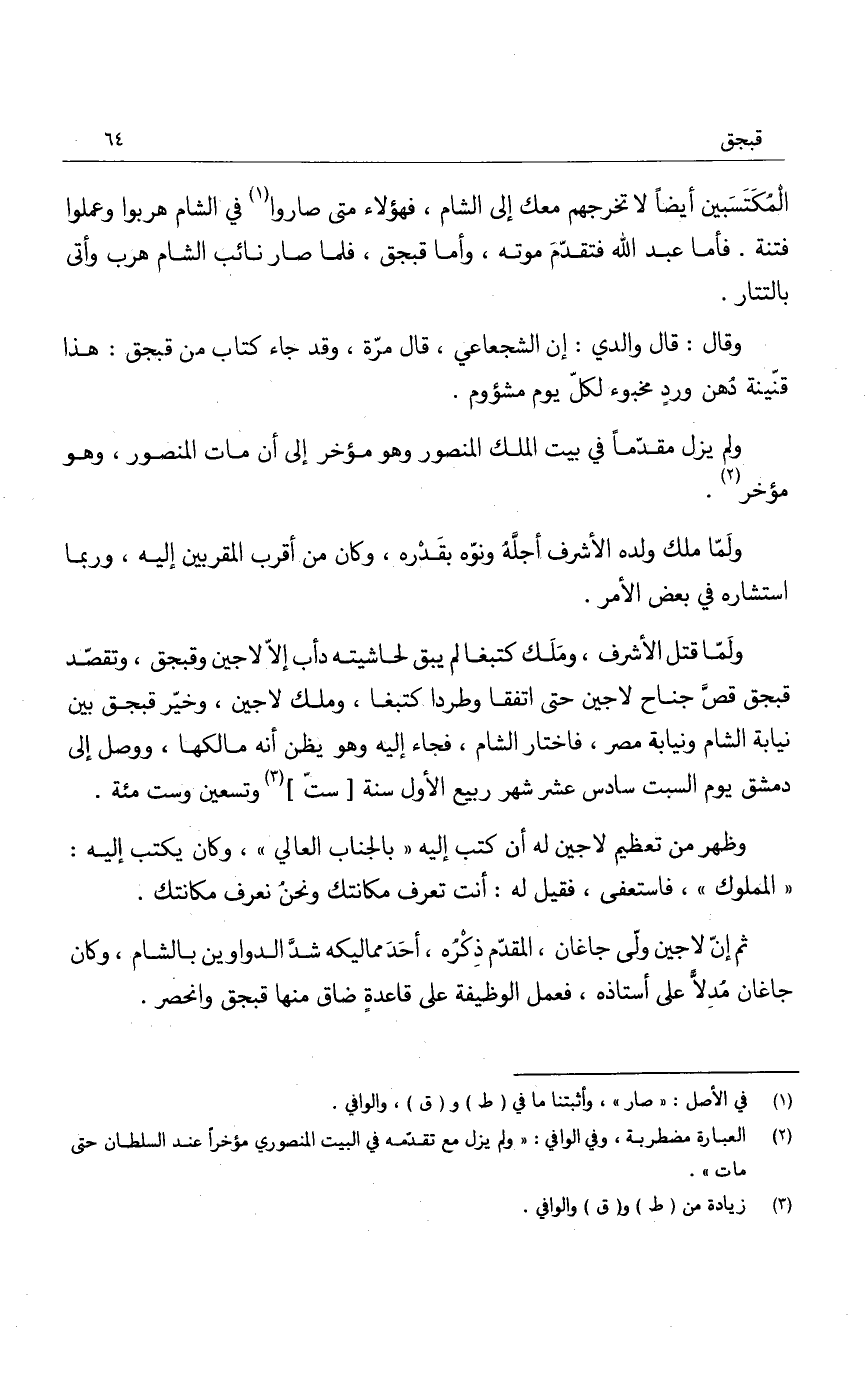 قبجق ٦٤
الْمُكتَسَبين أيضاً لا تخرجهم معك إلى الشام ، فهؤلاء متى صاروا(١) في الشام هربوا وعملوا
فتنة . فأما عبد الله فتقدّمَ موته ، وأما قبجق ، فلما صار نائب الشام هرب وأتى
بالتتار .
وقال : قال والدي : إن الشجعاعي ، قال مرّة ، وقد جاء كتاب من قبجق : هذا
قنّينة دُهن وردٍ مخبوء لكلّ يوم مشؤوم .
ولم يزل مقدّماً في بيت الملك المنصور وهو مؤخر إلى أن مات المنصور ، وهو
مؤخر(٢) .
ولَمّا ملك ولده الأشرف أجلَّهُ ونوّه بقَدْره ، وكان من أقرب المقربين إليه ، وربما
استشاره في بعض الأمر .
ولَمّا قتل الأشرف ، ومَلَك كتبغا لم يبق لحاشيته دأب إلاّ لاجين وقبجق ، وتقصّد
قبجق قصَّ جناح لاجين حتى اتفقا وطردا كتبغا ، وملك لاجين ، وخيّر قبجق بين
نيابة الشام ونيابة مصر ، فاختار الشام ، فجاء إليه وهو يظن أنه مالكها ، ووصل إلى
دمشق يوم السبت سادس عشر شهر ربيع الأول سنة [ ستّ ](٣) وتسعين وست مئة .
وظهر من تعظيم لاجين له أن كتب إليه « بالجناب العالي » ، وكان يكتب إليه :
« المملوك » ، فاستعفى ، فقيل له : أنت تعرف مكانتك ونحنُ نعرف مكانتك .
ثم إنّ لاجين ولّى جاغان ، المقدّم ذِكْرُه ، أحَدَ مماليكه شدَّ الدواوين بالشام ، وكان
جاغان مُدِلاًّ على أستاذه ، فعمل الوظيفة على قاعدةٍ ضاق منها قبجق وانحصر .
(١) في الأصل : « صار » ، وأثبتنا ما في ( ط ) و ( ق ) ، والوافي .
(٢) العبارة مضطربة ، وفي الوافي : « ولم يزل مع تقدّمه في البيت المنصوري مؤخراً عند السلطان حتى
مات » .
(٣) زيادة من ( ط ) و( ق ) والوافي .